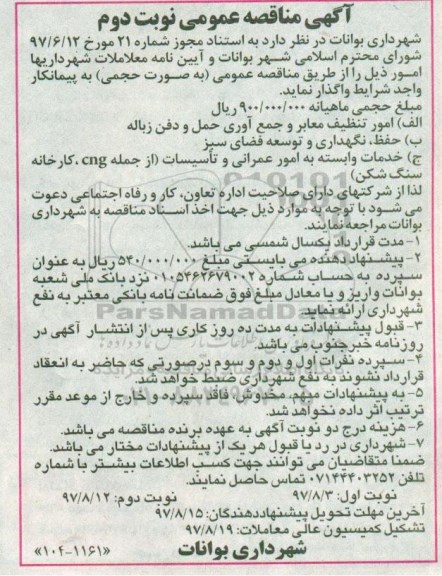 آگهی مناقصه عمومی نوبت دوم
شهرداری بوانات در نظر دارد به استناد مجوز شماره ۲۱ مورخ ۹۷/۶/۱۲
شورای محترم اسلامی شهر بوانات و آیین نامه معلاملات شهرداریها
امور ذیل را از طریق مناقصه عمومی (به صورت حجمی) به پیمانکار
واجد شرایط واگذار نماید.
مبلغ حجمی ماهیانه ۹۰۰/۰۰۰/۰۰۰ ریال
الف) امور تنظیف معابر و جمع آوری حمل و دفن زباله
ب) حفظ، نگهداری و توسعه فضای سبز
ج) خدمات وابسته به امور عمرانی و تأسیسات (از جمله cng ،کارخانه
سنگ شکن)
لذا از شرکتهای دارای صلاحیت اداره تعاون، کار و رفاه اجتماعی دعوت
می شود با توجه به موارد ذیل جهت اخذ اسناد مناقصه به شهرداری
بوانات مراجعه نمایند.
۱- مدت قرارداد یکسال شمسی می باشد.
۲- پیشنهاددهنده می بایستی مبلغ ۵۴۰/۰۰۰/۰۰۰ ریال به عنوان
سپرده به حساب شماره ۰۱۰۵۴۶۲۶۷۹۰۰۲ نزد بانک ملی شعبه
بوانات واریز و یا معادل مبلغ فوق ضمانت نامه بانکی معتبر به نفع
شهرداری ارائه نماید
۳- قبول پیشنهادات به مدت ده روز کاری پس از انتشار آگهی در
روزنامه خبرجنوب می باشد.
۴- سپرده نفرات اول و دوم و سوم درصورتی که حاضر به انعقاد
قرارداد نشوند به نفع شهرداری ضبط خواهد شد.
۵- به پیشنهادات مبهم، مخدوش، فاقد سپرده و خارج از موعد مقرر
ترتیب اثر داده نخواهد شد.
۶- هزینه درج دو نوبت آگهی به عهده برنده مناقصه می باشد.
۷- شهرداری در رد یا قبول هر یک از پیشنهادات مختار می باشد.
ضمنا متقاضیان می توانند جهت کسب اطلاعات بیشتر با شماره
تلفن ۰۷۱۴۴۴۰۳۲۵۲ تماس حاصل نمایند.
نوبت اول: ۹۷/۸/۳ نوبت دوم: ۹۷/۸/۱۲
آخرین مهلت تحویل پیشنهاددهندگان: ۹۷/۸/۱۵
تشکیل کمیسیون عالی معاملات: ۹۷/۸/۱۹
شهرداری بوانات «۱۰۴-۱۱۶۱»
ParsNamadData